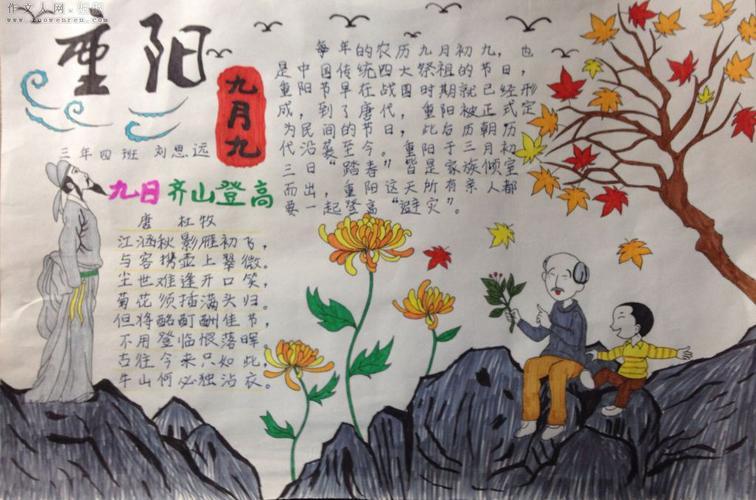 作文人网
zuowenren.com
重阳
九月九
三年四班 刘思远
每年的农历九月初九，也
是中国传统四大祭祖的节日，
重阳节早在战国时期就已经形
成，到了唐代，重阳被正式定
为民间的节日，此后历朝历
代沿袭至今。重阳于三月初
三日“踏春”皆是家族倾室
而出，重阳这天所有亲人都
要一起登高“避灾”。
九日齐山登高
唐 杜牧
江涵秋影雁初飞，
与客携壶上翠微。
尘世难逢开口笑，
菊花须插满头归。
但将酩酊酬佳节，
不用登临恨落晖
古往今来只如此，
牛山何必独沾衣。